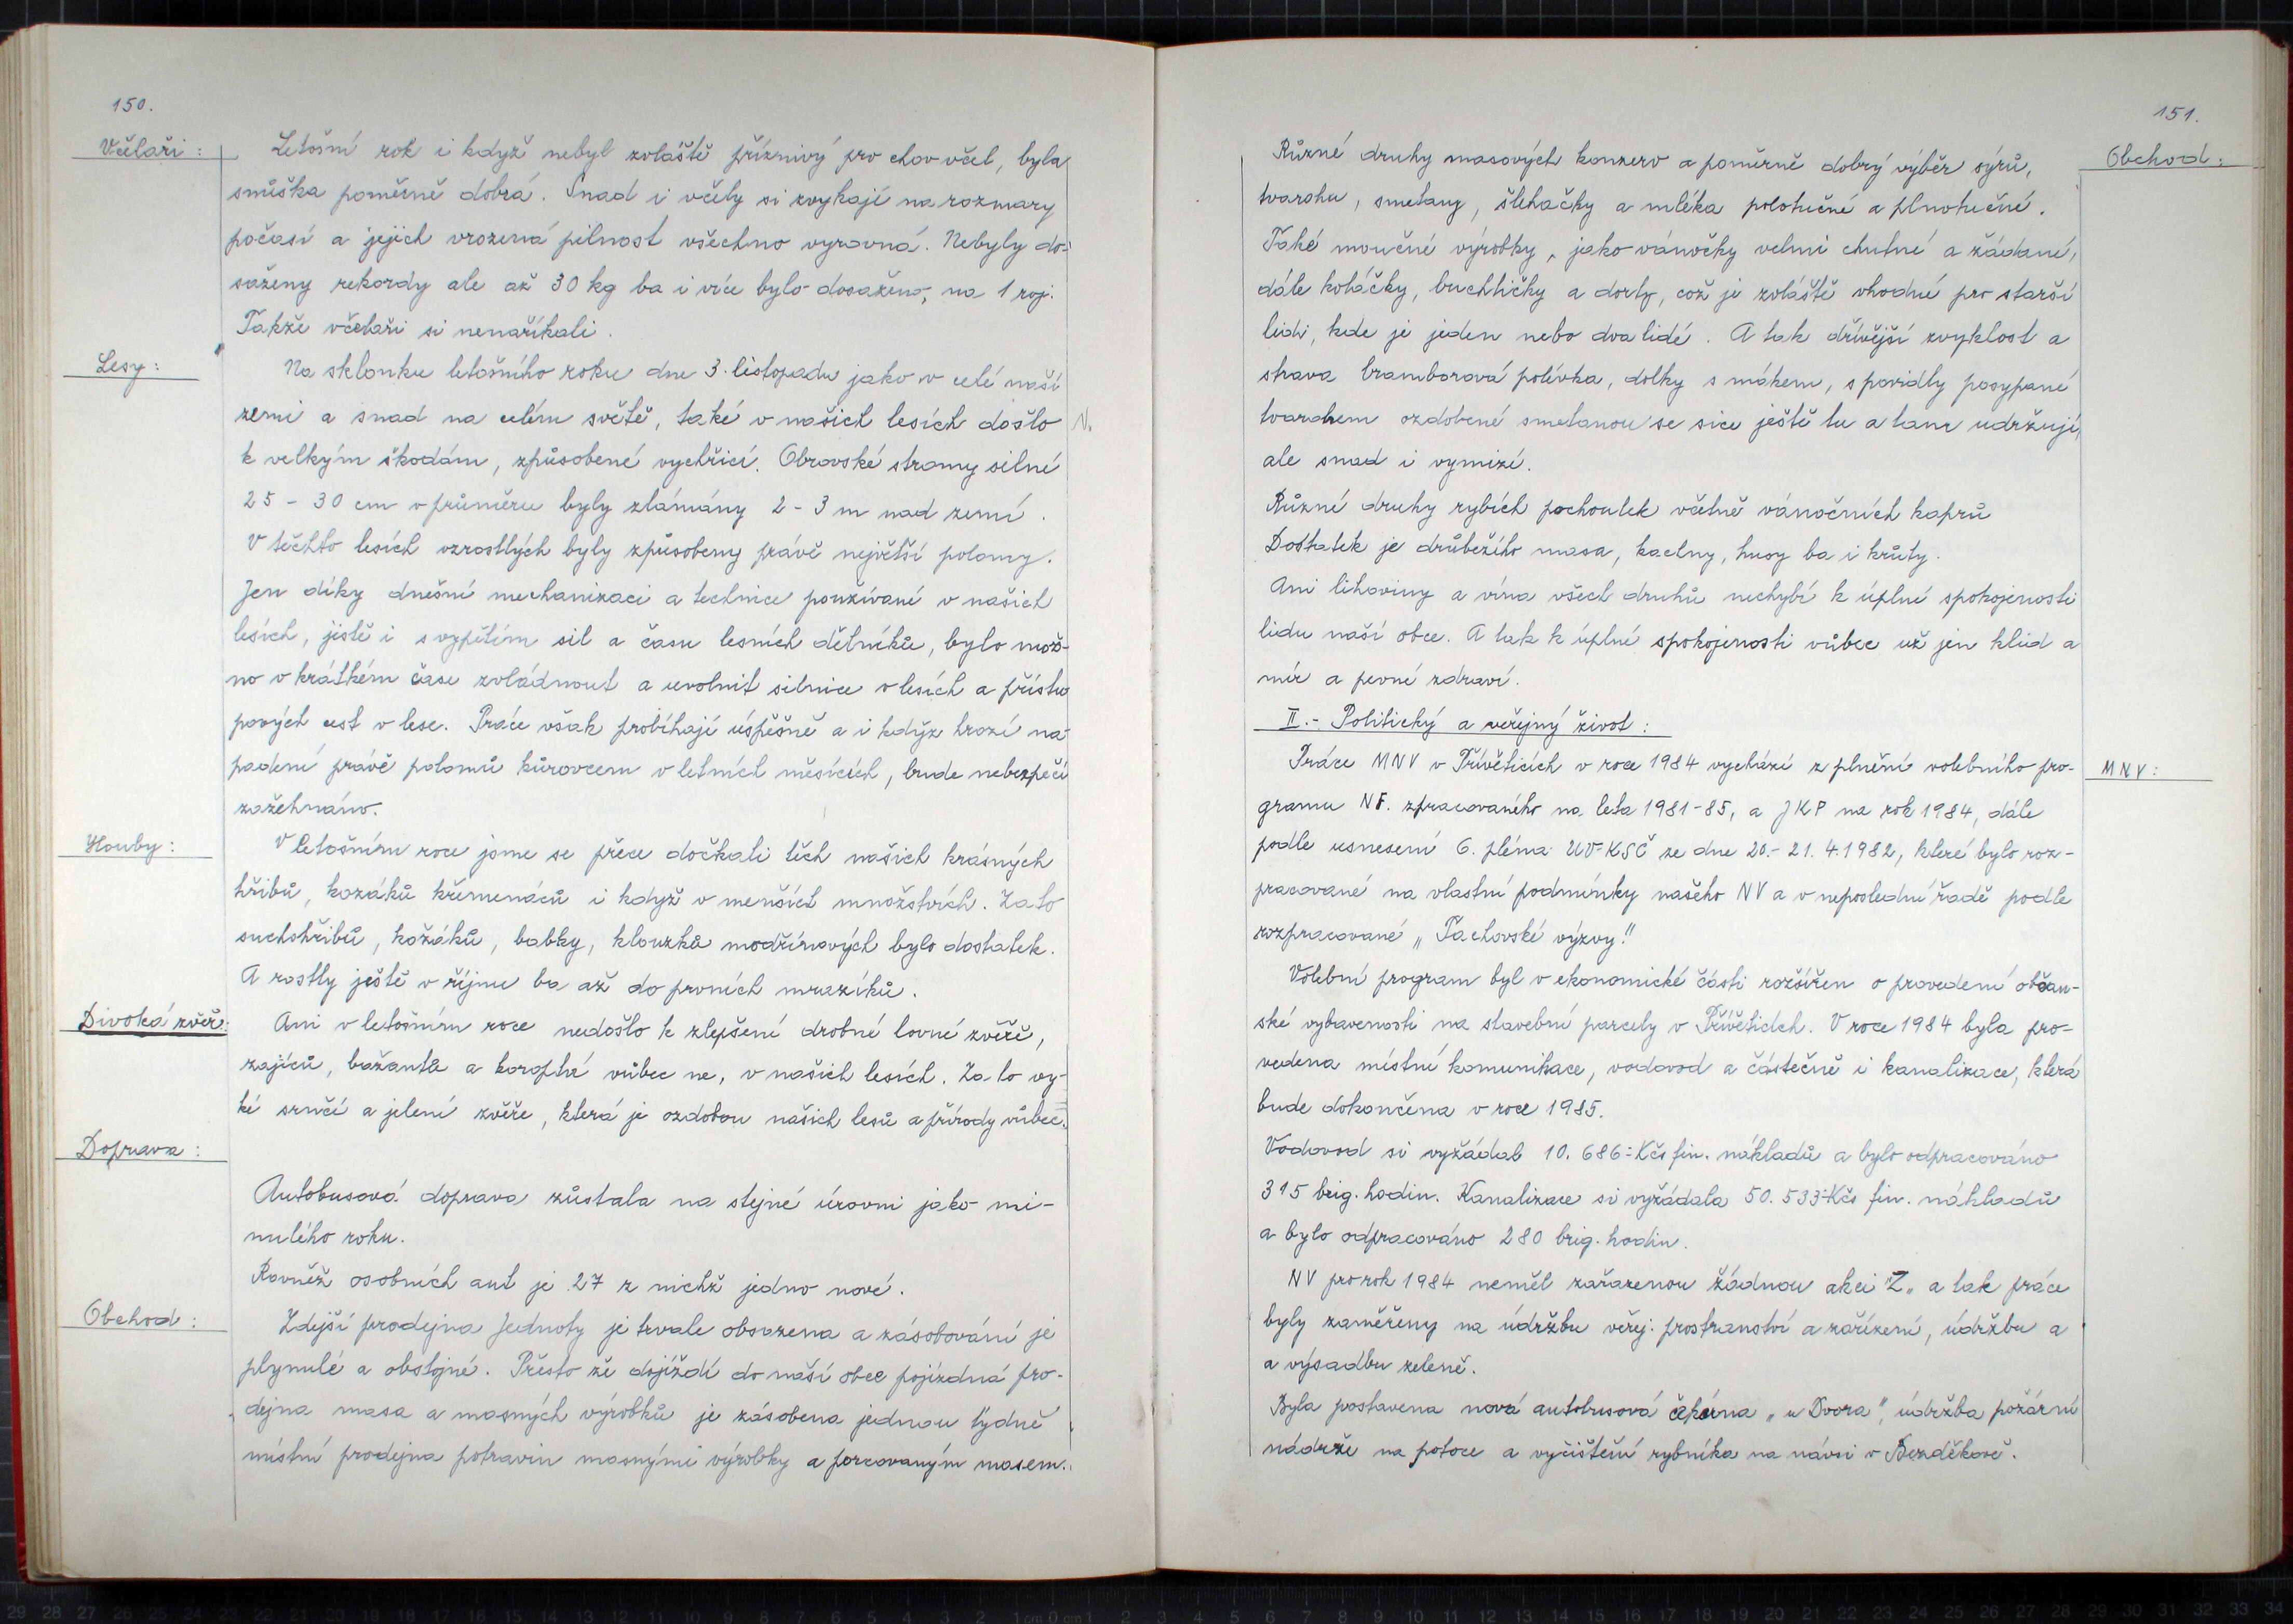 150.
Včelaři :
Letošní rok i když nebyl zvláště příznivý pro chov včel, byla
snůška poměrně dobrá. Snad i včely si zvykají na rozmary
počasí a jejich vrozená pilnost všechno vyrovná. Nebyly do-
saženy rekordy ale až 30 kg ba i více bylo dosaženo, na 1 roj.
Takže včelaři si nenaříkali.
Lesy :
Na sklonku letošního roku dne 3. listopadu jako v celé naší
zemi a snad na celém světě, také v našich lesích došlo N.
k velkým škodám, způsobené vychřicí. Obrovské stromy silné
25 - 30 cm v průměru byly zlámány 2 - 3 m nad zemí.
V těchto lesích vzrostlých byly způsobeny právě největší polomy.
Jen díky dnešní mechanizaci a technice používané v našich
lesích, jistě i s vypětím sil a času lesních dělníků, bylo mož-
no v krátkém čase zvládnout a uvolnit silnice v lesích a přístu
pových cest v lese. Práce však probíhají úspěšně a i když hrozí na-
padení právě polomů kůrovcem v letních měsících, bude nebezpečí
zažehnáno.
Houby :
V letošním roce jsme se přece dočkali těch našich krásných
hřibů, kozáků křemenáců i když v menších množstvích. Za to
suchohřibů, kožáků, babky, klouzků modřínových bylo dostatek.
A rostly ještě v říjnu ba až do prvních mrazíků.
Divoká zvěř:
Ani v letošním roce nedošlo k zlepšení drobné lovné zvěře,
zajíců, bažantů a koroptví vůbec ne, v našich lesích. Za to vy-
ké srnčí a jelení zvěře, která je ozdobou našich lesů a přírody vůbec.
Doprava :
Autobusová doprava zůstala na stejné úrovni jako mi-
nulého roku.
Rovněž osobních aut je 27 z nichž jedno nové.
Obchod :
Zdejší prodejna Jednoty je trvale obsazena a zásobování je
plynulé a obstojné. Přesto že dojíždí do naší obce pojízdná pro-
dejna masa a masných výrobků je zásobena jednou týdně
místní prodejna potravin masnými výrobky a porcovaným masem.
151.
Obchod :
Různé druhy masových konzerv a poměrně dobrý výběr sýrů,
tvarohu, smetany, šlehačky a mléka polotučné a plnotučné.
Také moučné výrobky, jako vánočky velmi chutné a žádané,
dále koláčky, buchtičky a dorty, což je zvláště vhodné pro starší
lidi, kde je jeden nebo dva lidé. A tak dřívější zvyklost a
strava bramborová polévka, dolky s mákem, s povidly posypané
tvarohem ozdobené smetanou se sice ještě tu a tam udržují,
ale snad i vymizí.
Různé druhy rybích pochoutek včetně vánočních kaprů
Dostatek je drůbežího masa, kachny, husy ba i krůty.
Ani lihoviny a vína všech druhů nechybí k úplné spokojenosti
lidu naší obce. A tak k úplné spokojenosti vůbec už jen klid a
mír a pevné zdraví.
II.- Politický a veřejný život :
MNV :
Práce MNV v Příběticích v roce 1984 vychází z plnění volebního pro-
gramu NF. zpracovaného na leta 1981-85, a JKP na rok 1984, dále
podle usnesení 6. pléna ÚV-KSČ ze dne 20.- 21. 4. 1982, které bylo roz-
pracované na vlastní podmínky našeho NV a v neposlední řadě podle
rozpracované „Tachovské výzvy!"
Volební program byl v ekonomické části rozšířen o provedení občan-
ské vybavenosti na stavební parcely v Příběticích. V roce 1984 byla pro-
vedena místní komunikace, vodovod a částečně i kanalizace, která
bude dokončena v roce 1985.
Vodovod si vyžádal 10. 686.- Kčs fin. nákladů a bylo odpracováno
315 brig. hodin. Kanalizace si vyžádala 50. 533.-Kčs fin. nákladů
a bylo odpracováno 280 brig. hodin.
NV pro rok 1984 neměl zařazenou žádnou akci "Z„ a tak práce
byly zaměřeny na údržbu veřej. prostranství a zařízení, údržbu a
a výsadbu zeleně.
Byla postavena nová autobusová čekárna „u Dvora", údržba požární
nádrže na potoce a vyčištění rybníka na návsi v Bezděkově.